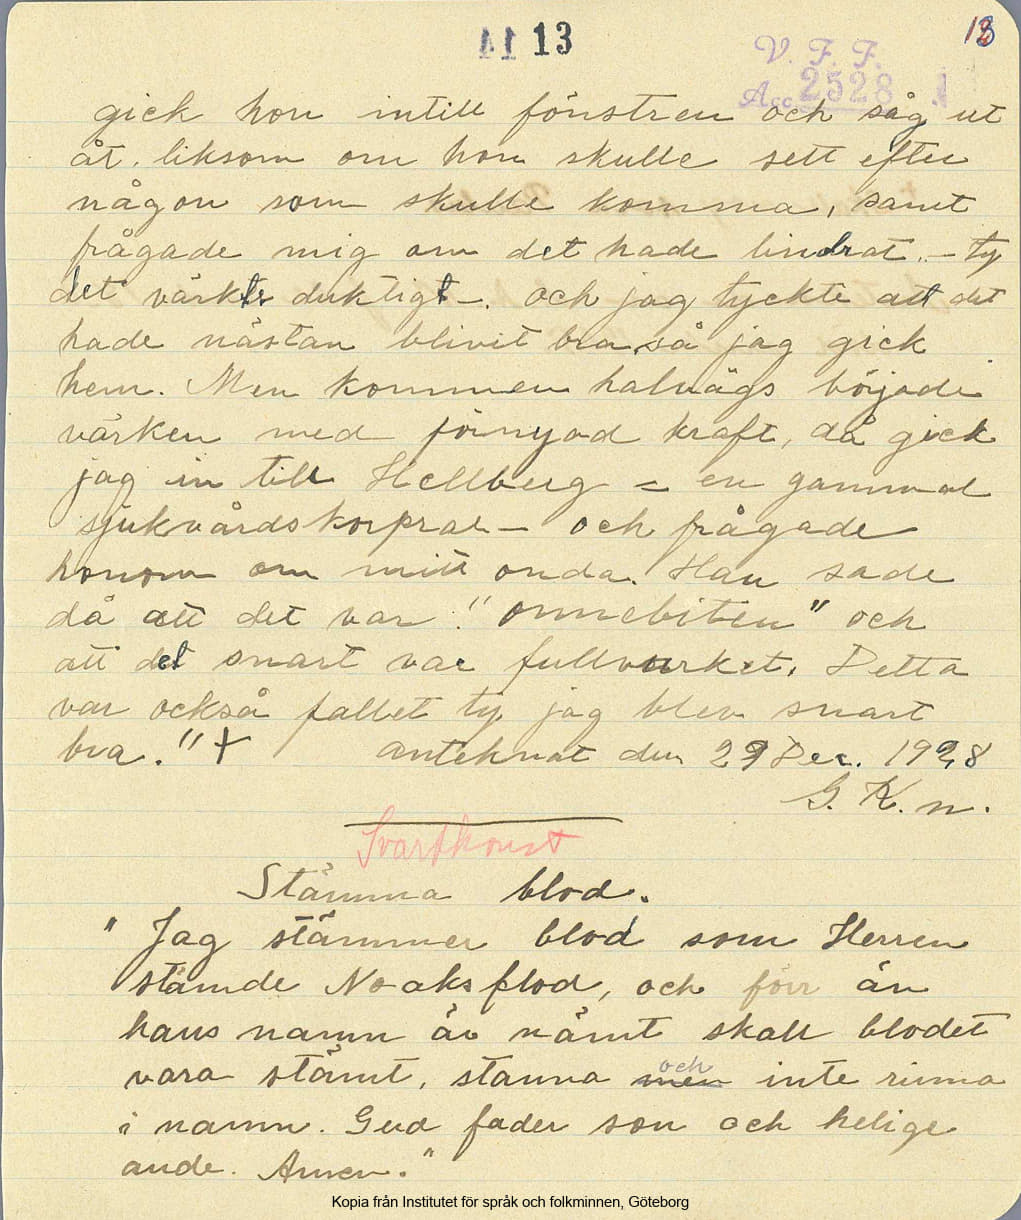 13
V. F. F.
Acc. 2528
gick hon intill fönstren och såg ut
åt. liksom om hon skulle sett efter
någon som skulle komma, samt
frågade mig om det hade lindrat. - ty
det värkte duktigt -. och jag tyckte att det
hade nästan blivit bra, så jag gick
hem. Men kommen halvägs började
värken med förnyad kraft, då gick
jag in till Hellberg = en gammal
sjukvårdskorpral - och frågade
honom om mitt onda. Han sade
då att det var "onnebiten" och
att det snart var fullvurket. Detta
var också fallet ty jag blev snart
bra." +
anteknat den 29 Dec. 1928
G. K. n.
Svartkonst
Stämma blod.
" Jag stämmer blod som Herren
stämde Noaks flod, och förr än
hans namn är nämt skall blodet
vara stämt, stanna men och inte rinna
i namn. Gud fader son och helige
ande. Amen."
Kopia från Institutet för språk och folkminnen, Göteborg